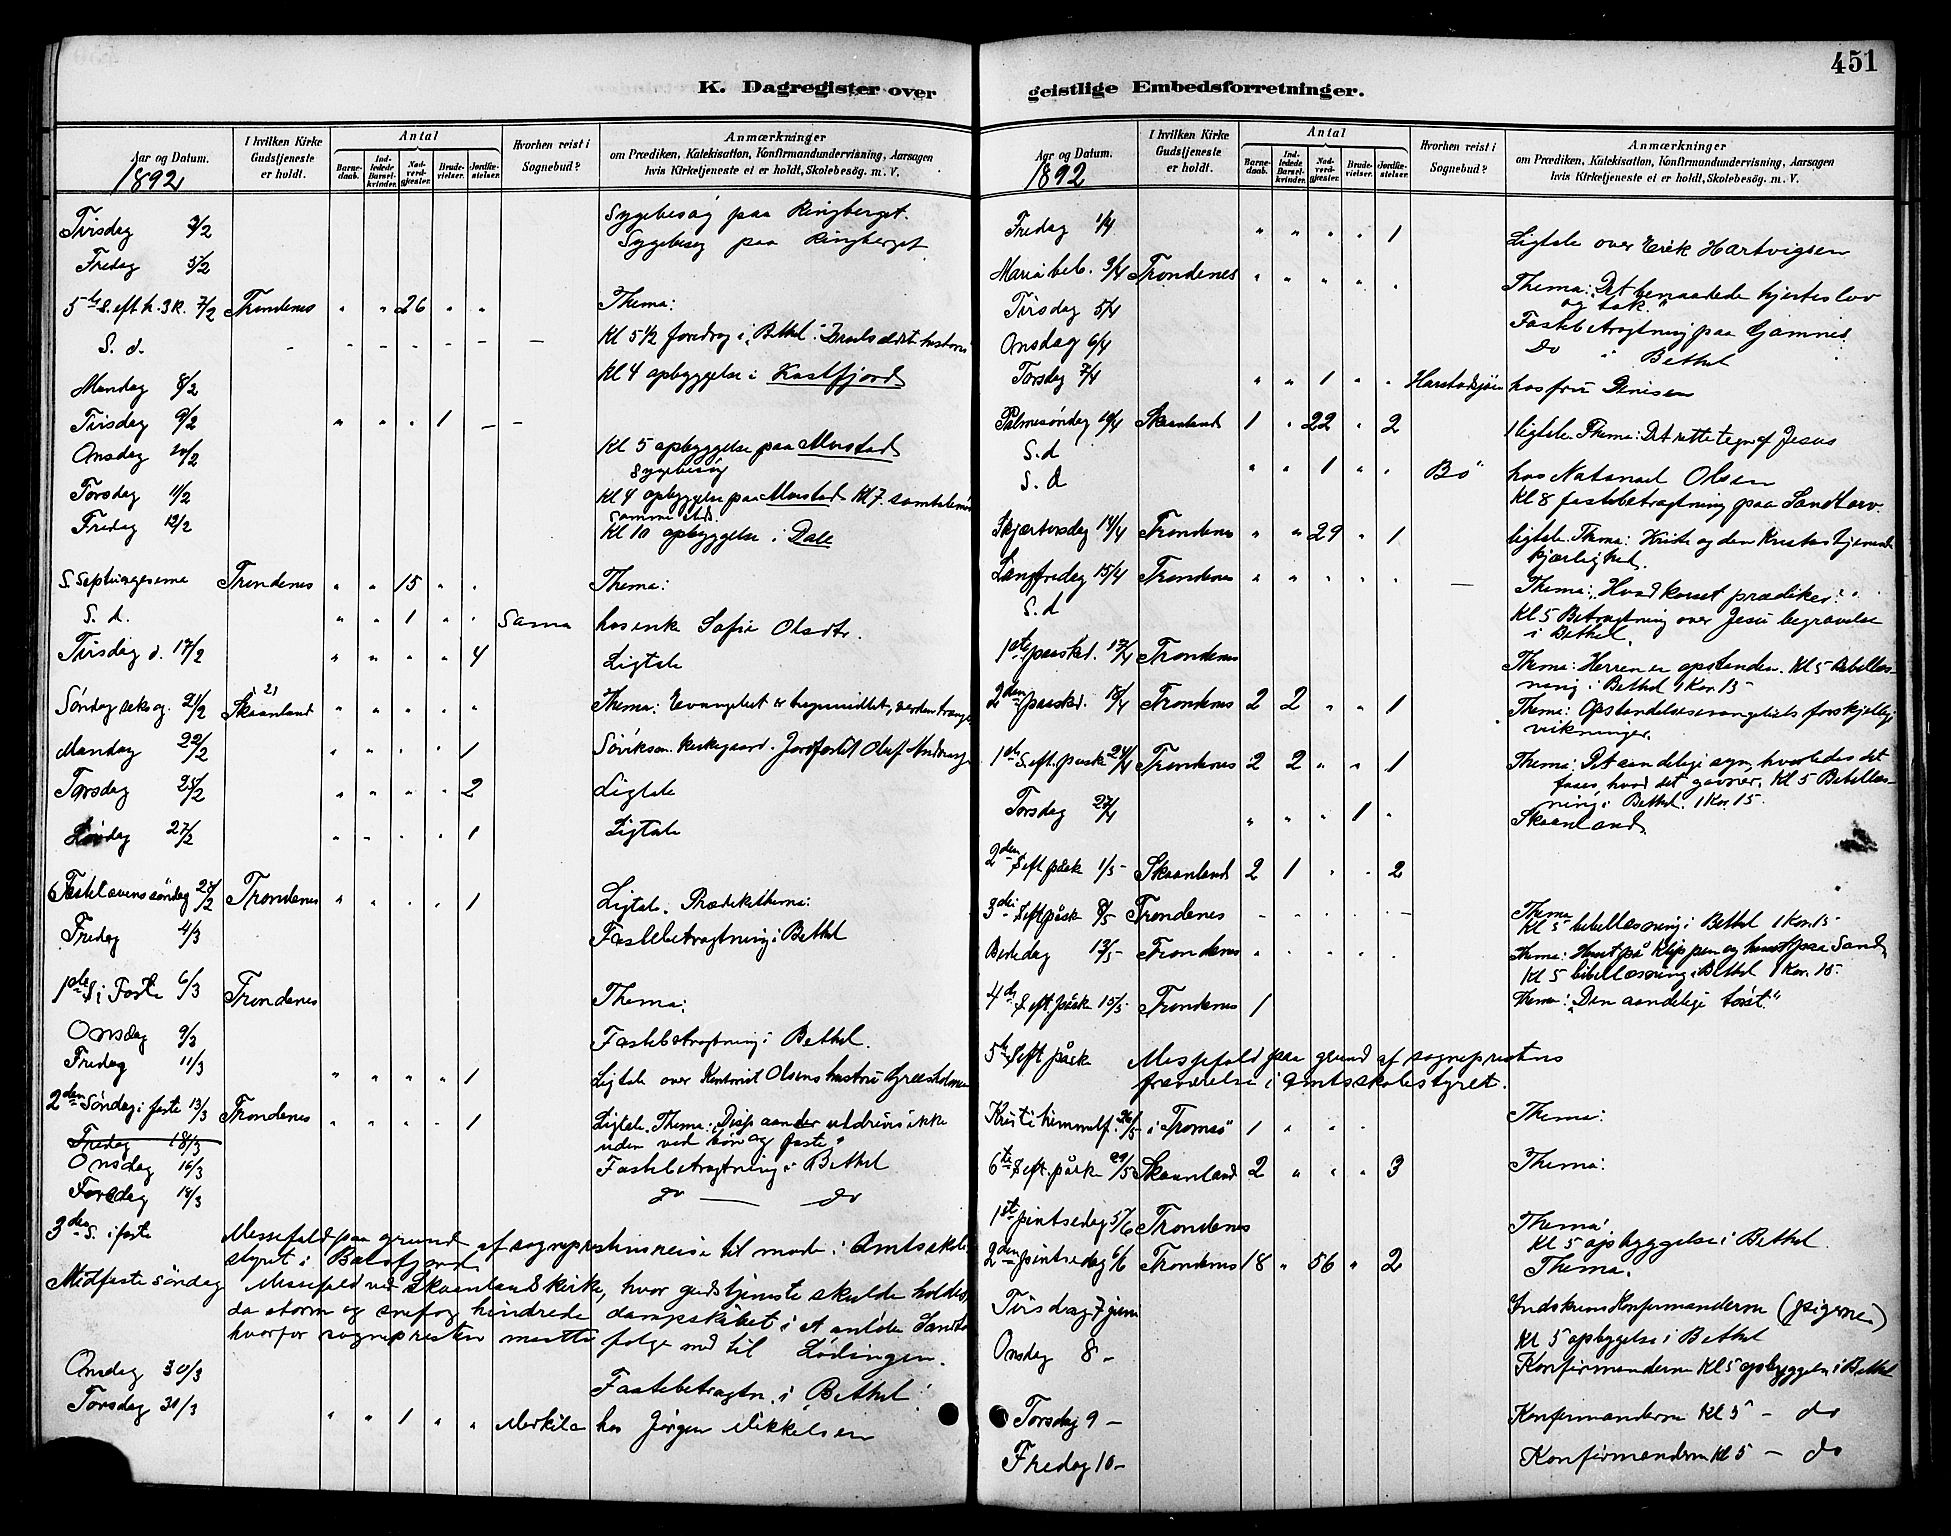 451
K. Dagregister over
Aar og Datum.
1892
I hvilken Kirke Gudstjeneste er holdt.
Antal
Barnedaab.
Indledede Barselkvinder.
Nadverdgjæster.
Brudevielser.
Jordfæstelser.
Hvorhen reist i Sognebud?
Anmærkninger
om Prædiken, Katekisation, Konfirmandundervisning, Aarsagen
hvis Kirketjeneste ei er holdt, Skolebesøg. m. V.
Tirsdag 2/2 Sygebesøg paa Ringberget.
Fredag 5/2 Sygebesøg paa Ringberget
5te S. eft. h. 3 K. 7/2 Trondenes " " 26 " " Thema:
S. d. - - - - - - - Kl 5 1/2 foredrag i "Bethel".
Mandag 8/2 Kl 4 opbyggelse i Kastfjord
Tirsdag 9/2 " " " 1 - -
Onsdag 10/2 Kl 5 opbyggelse paa Melstad
Sygebesøg
Torsdag 11/2 Kl 4 opbyggelse paa Kl 7. samtalemø
samme sted.
Fredag 12/2 Kl 10 opbyggelse i Dale
S. Septuagesima Trondenes " " 15 " " Thema:
S. d. " " 1 " " Sama hos enke Sofie Olsdtr.
Tirsdag d. 17/2 " " " " 4 Ligtale
Søndag seksag. 21/2 Skaanland " " " " " Thema: Evangeliet er
Mandag 22/2 " " " " 1 Sørvikson. Kirkegaard. Jordfæstet Oluf
Torsdag 25/2 " " " " 2 Ligtale
Lørdag 27/2 " " " " 1 Ligtale
Fastelavenssøndag 28/2 Trondenes " " " " 1 Ligtale. Prædikethema:
Fredag 4/3 Fastebetragtning i Bethel
1ste S. i Faste 6/3 Trondenes Thema:
Onsdag 9/3 Fastebetragtning i Bethel.
Fredag 11/3 " " " " 1 Ligtale over Kontorist Olsens hustru Græsholmen
2den Søndag i faste 13/3 Trondenes " " " " 1 Ligtale. Thema: "Disse aander uddrives ikke
uden ved bøn og faste"
Fredag 18/3
Onsdag 16/3 Fastebetragtning i Bethel
Fredag 18/3 do — do
3die S. i faste Messefald paa grund af sogneprestens reise til møde i Amtsskole
styret i Balsfjord
Midfaste søndag Messefald ved Skaanland kirke, hvor gudstjeneste skulde holdes,
da storm og snefog hindrede dampskibet i at anløbe Sandto
hvorfor sognepresten maatte følge med til Lødingen.
Onsdag 30/3 Fastebetragtn. i Bethel
Torsdag 31/3 " " 1 " " Merkila hos Jørgen Mikkelsen
geistlige Embedsforretninger.
Aar og Datum.
1892
I hvilken Kirke Gudstjeneste er holdt.
Antal
Barnedaab.
Indledede Barselkvinder.
Nadverdgjæster.
Brudevielser.
Jordfæstelser.
Hvorhen reist i Sognebud?
Anmærkninger
om Prædiken, Katekisation, Konfirmandundervisning, Aarsagen
hvis Kirketjeneste ei er holdt, Skolebesøg. m. V.
Fredag 1/4 " " " " 1 Ligtale over Erik Hartvigsen
Maria beb. 3/4 Trondenes " " " " " Thema: "Det benaadede hjertes lov
og tak."
Tirsdag 5/4 Fastebetragtning paa Gamnes
Onsdag 6/4 Do " Bethel
Torsdag 7/4 " " 1 " " Harstadsjøen hos fru Denisen
Palmesøndag 10/4 Skaanland 1 " 22 " 2 1 ligtale. Thema: Det rette tegn af Jesus
S. d
S. d " " 1 " " Bø hos Natanael Olsen
Kl 8 fastebetragtning paa Sandtorv.
Skjærtorsdag 14/4 Trondenes " " 29 " 1 ligtale. Thema: Kriste og den tjenende
kjærlighed.
Langfredag 15/4 Trondenes " " " " " — Thema: "Hvad korset prædiker."
S. d Kl 5 Betragtning over Jesu begravelse
i Bethel.
1ste paaskd. 17/4 Trondenes Thema: Herren er opstanden. Kl 5 Bibellæs-
ning i Bethel 1 Kor. 15
2den paaskd. 18/4 Trondenes 2 2 " " 1 Thema: Opstandelsesevangeliets forskjellige
virkninger.
1ste S. eft. paask 24/4 Trondenes 2 2 " " 1 Thema: Det aandelige syn, hvorledes det
faaes, hvad det gavner. Kl 5 Bibellæs-
ning i Bethel. 1 Kor. 15.
Torsdag 27/4 " " " 1 " Skaanland
2den S. eft påsk 1/5 Skaanland 2 1 " " 2
3die S. eft påsk 8/5 Trondenes - " " " - Thema
Kl 5 bibellæsning i Bethel 1 Kor. 15
Bededag 13/5 Trondenes " " " " " Thema: Huset på klippen og huset paa Sand
Kl 5 bibellæsning i Bethel 1 Kor. 15
4de S. eft. påsk 15/5 Trondenes 1 Thema: "Den aandelige tørst"
5te S. eft påsk Messefald paa grund af sogneprestens
fraværelse i amtsskolestyret.
Kristi himmelf. 26/5 i Tromsø 1 " " " Thema:
6te S. eft. påsk 29/5 Skaanland 2 " " " 3 Thema:
1ste pintsedag 5/6 Trondenes Thema:
Kl 5 opbyggelse i Bethel.
2den pintsedag 6/6 Trondenes 18 " 56 " 2 Thema.
Tirsdag 7 juni Indskrevs Konfirmanderne (pigerne)
Kl 5 opbyggelse i Bethel
Onsdag 8 - Konfirmanderne Kl 5 opbyggelse i Bethel
Torsdag 9 - Konfirmanderne Kl 5 - do
Fredag 10 - Konfirmanderne Kl 5 - do